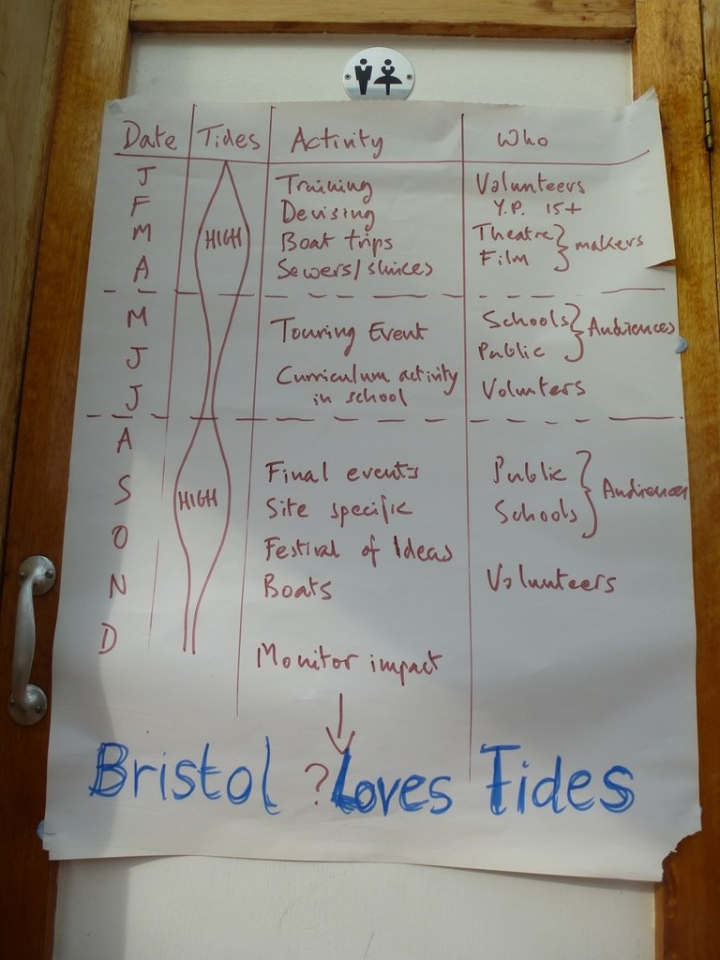 Date Tides Activity Who
J Training Volunteers
F Devising Y.P. 15+
M HIGH Boat trips Theatre } makers
A Sewers/sluices Film
M Touring Event Schools } Audiences
J Public
J Curriculum activity in school Volunters
A
S HIGH Final events Public } Audiences
Site specific Schools
O Festival of Ideas
N Boats Volunteers
D Monitor impact
Bristol ? Loves Tides